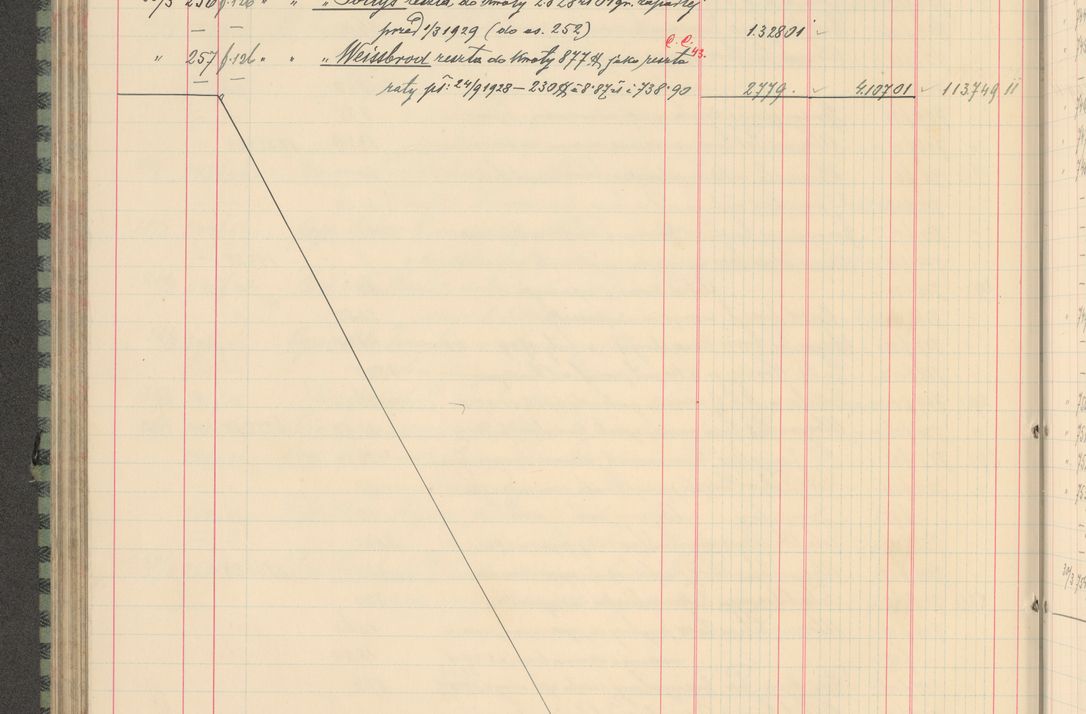 256 f.126 " " "Soltys reszta do kwoty 2.828 zł 01 gr. zapadłej
— — przed 1/3 1929 (do as. 252) 1.328 01
C.C.
" 257 f.126 " " "Weissbrod reszta do kwoty 877 $ jako reszta 43.
— — raty pł: 24/9 1928 — 230 $ à 8·87 zł i 738·90 2779. 4.107 01 113.749 11